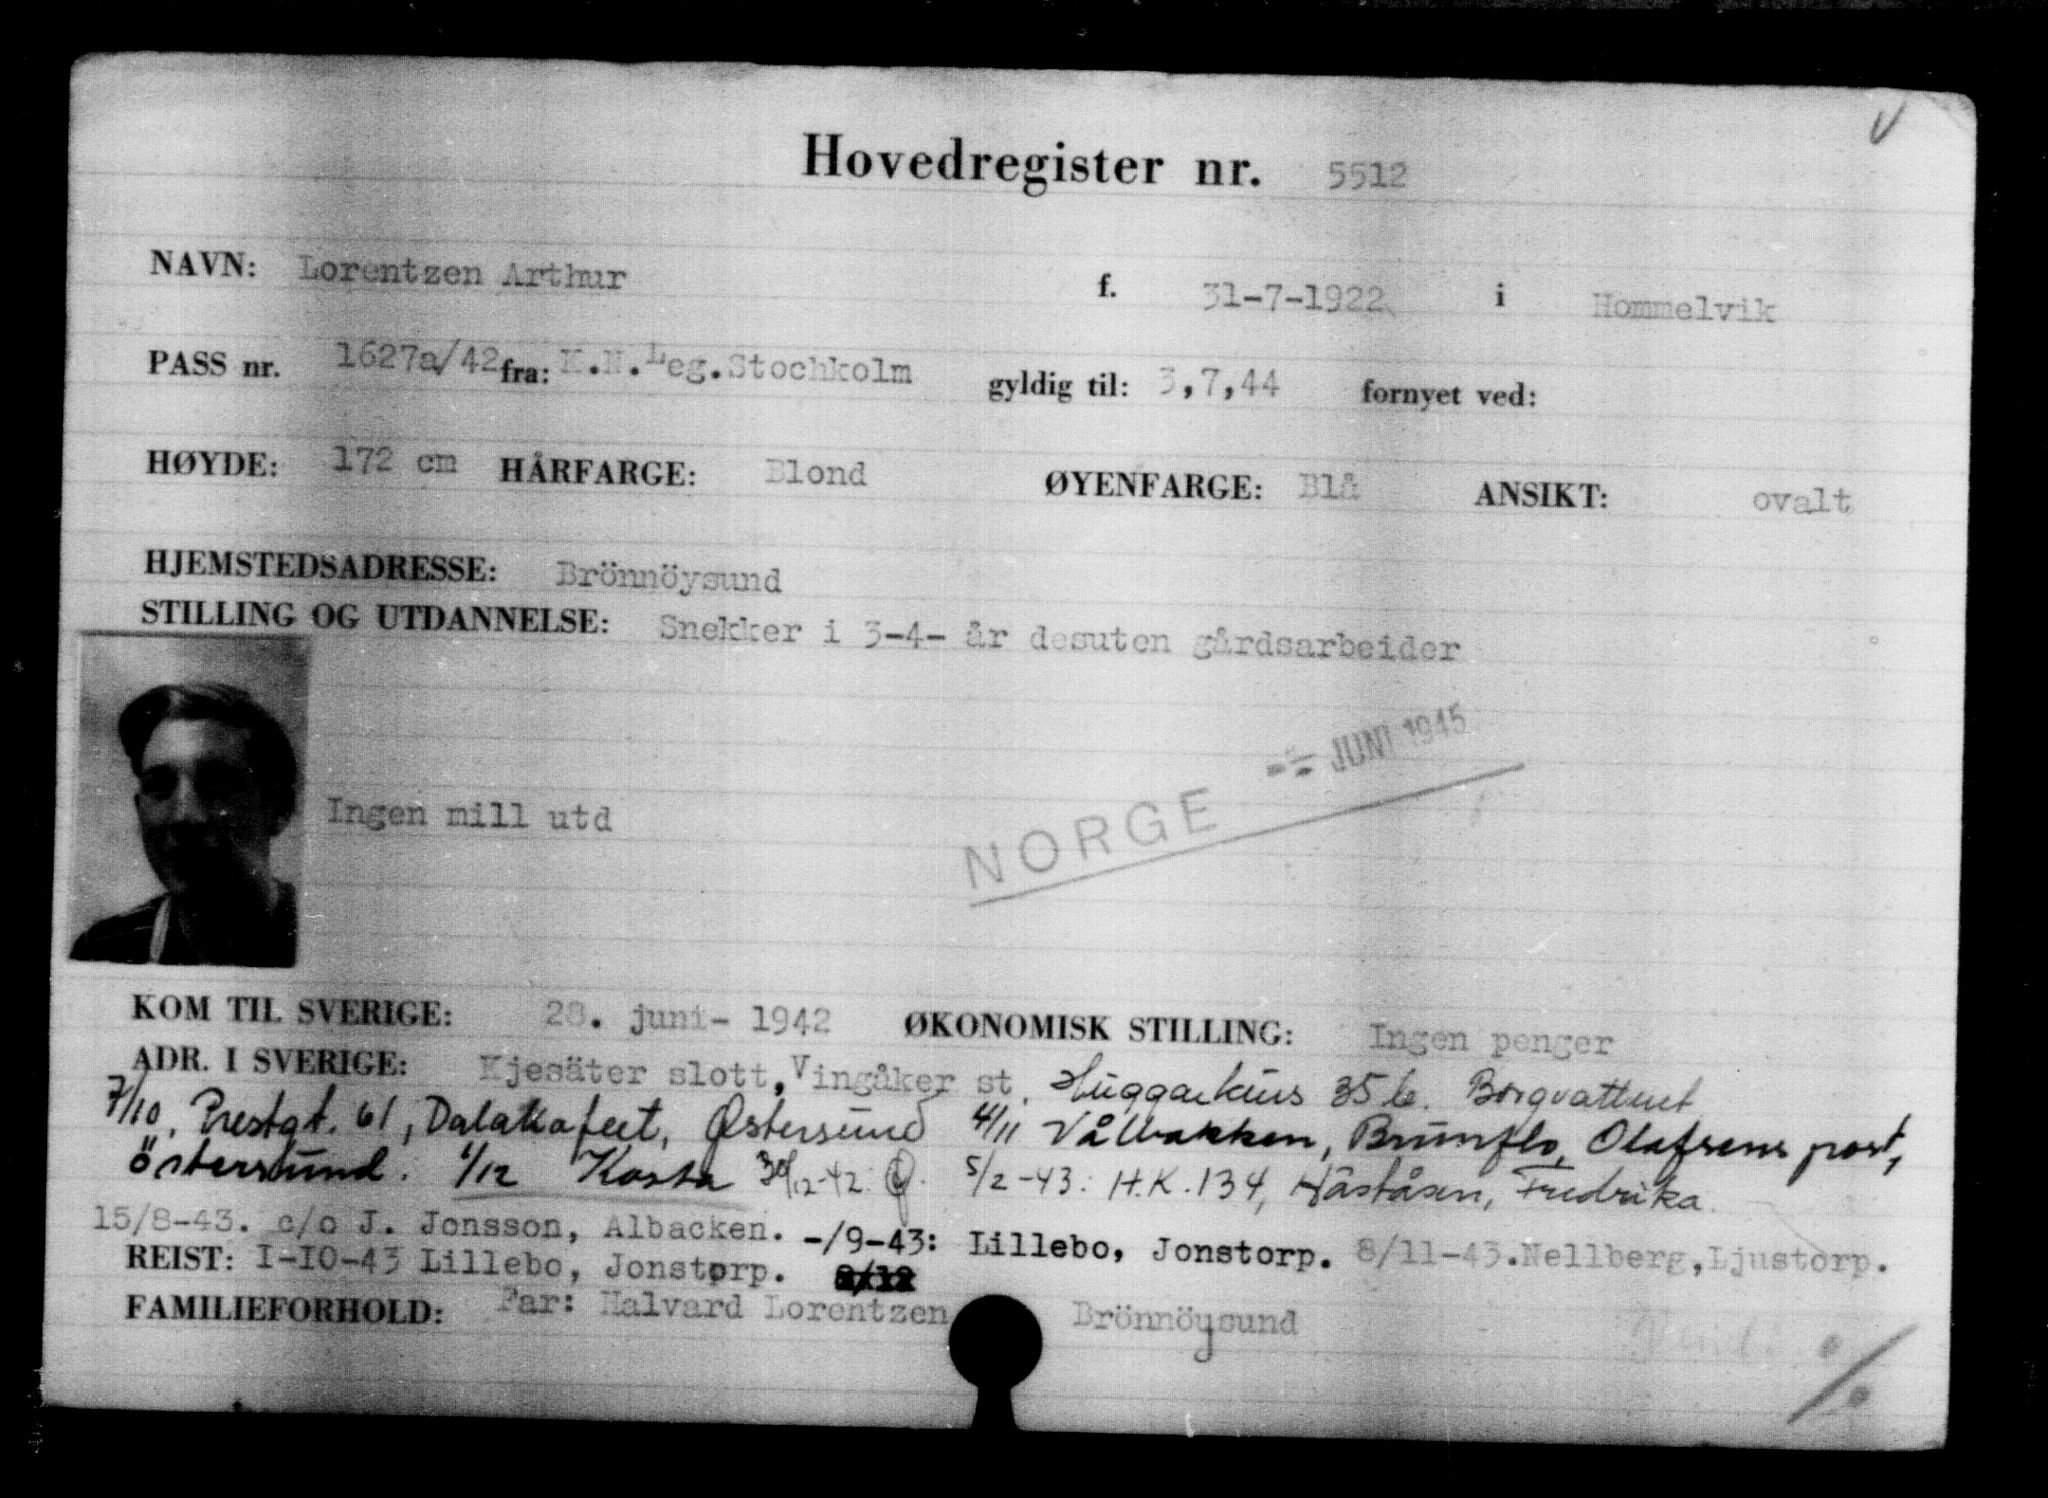 Hovedregister nr. 5512
NAVN: Lorentzen Arthur f. 31-7-1922 i Hommelvik
PASS nr. 1627a/42 fra: K.N.Leg.Stochkolm gyldig til: 3,7,44 fornyet ved:
HØYDE: 172 cm HÅRFARGE: Blond ØYENFARGE: Blå ANSIKT: ovalt
HJEMSTEDSADRESSE: Brönnöysund
STILLING OG UTDANNELSE: Snekker i 3-4- år desuten gårdsarbeider
JUNI 1945
NORGE
Ingen mill utd
KOM TIL SVERIGE: 28. juni- 1942 ØKONOMISK STILLING: Ingen penger
ADR. I SVERIGE: Kjesäter slott, Vingåker st. Huggarkurs 35 b. Borgvattnet
7/10, Prestgt. 61, Dalakafeet, Østersund 4/11 Vållbakken, Brunflo, Olafsens post,
Östersund. 1/12 Kosta 30/12-42 5/2-43: H.K. 134, Häståsen, Fredrika.
15/8-43. c/o J. Jonsson, Albacken. -/9-43: Lillebo, Jonstorp. 8/11-43. Nellberg, Ljustorp.
REIST: I-IO-43 Lillebo, Jonstorp.
FAMILIEFORHOLD: Far: Halvard Lorentzen Brönnöysund